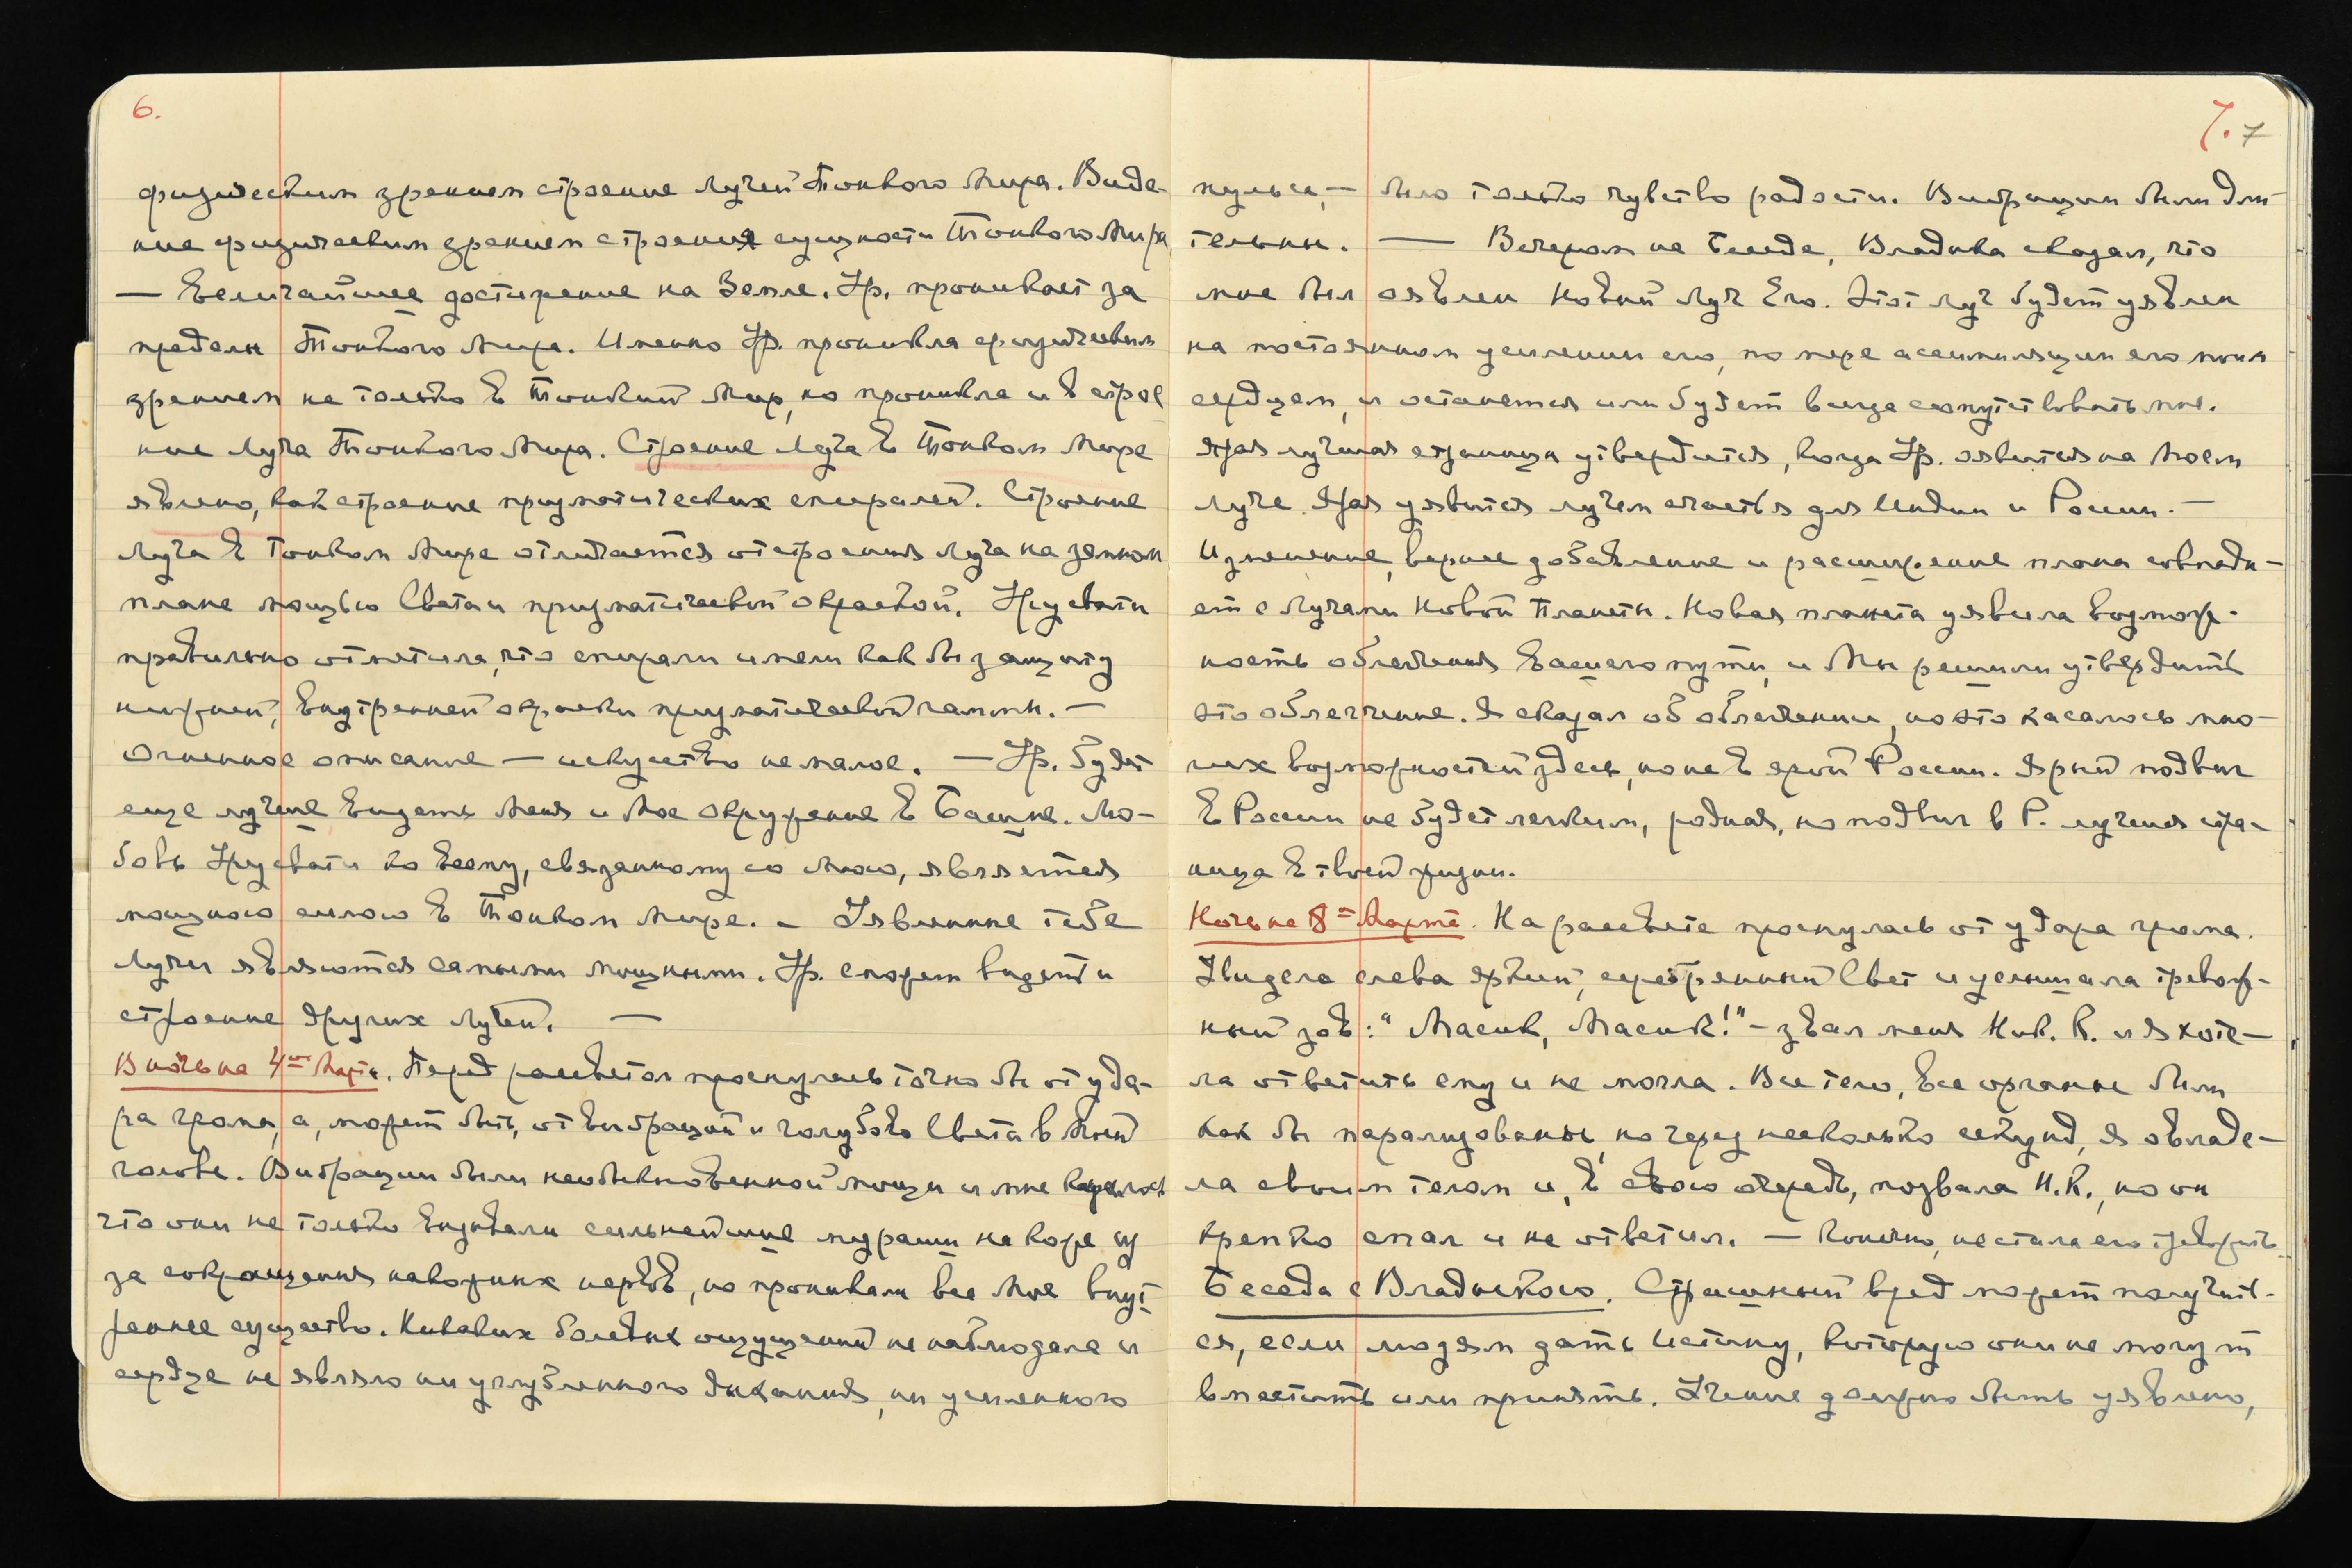 6.
физическим зрением строение лучей Тонкого Мира. Виде-
ние физическим зрением строения сущности Тонкого Мира
— Величайшее достижение на Земле. Ур. проникает за
пределы Тонкого Мира. Именно Ур. проникла физическим
зрением не только в Тонкий Мир, но проникла и в строе
ние Луча Тонкого Мира. Строение Луча в Тонком Мире
явлено, как строение призматических спиралей. Строение
Луча в Тонком Мире отличается от строения Луча на земном
плане мощью Света и призматической окраской. Урусвати
правильно отметила, что спирали имели как бы защиту
нижней, внутренней окраски призматической гаммы. —
Огненное описание — искусство не малое. — Ур. будет
еще лучше видеть Меня и Мое окружение в Башне. Лю-
бовь Урусвати ко всему, связанному со Мною, является
мощною силою в Тонком Мире. – Уявленные тебе
Лучи являются самыми мощными. Ур. сможет видеть и
строение других Лучей. —
В ночь на 4ое Марта. Перед рассветом проснулась точно бы от уда-
ра грома, а, может быть, от вибраций и голубого Света в моей
голове. Вибрации были необыкновенной мощи и мне казалось
что они не только вызывали сильнейшие мураши на коже из
за сокращения накожных нервов, но проникали все мое внут
реннее существо. Никаких болевых ощущений не наблюдала и
сердце не являло ни углубленного дыхания, ни усиленного
7. 7
пульса, — было только чувство радости. Вибрации были дли-
тельны. — Вечером на Беседе, Владыка сказал, что
мне был оявлен новый луч Его. Этот луч будет уявлен
на постоянном усилении его, по мере ассимиляции его моим
сердцем, и останется или будет всегда сопутствовать мне.
Ярая лучшая страница утвердится, когда Ур. оявится на Моем
луче. Ярая уявится лучем счастья для Индии и России. —
Изменение, вернее добавление и расширение плана совпада-
ет с Лучами Новой Планеты. Новая планета уявила возмож-
ность облегчения вашего пути, и Мы решили утвердить
это облегчение. Я сказал об облегчении, но это касалось мно-
гих возможностей здесь, но не в ярой России. Ярый подвиг
в России не будет легким, родная, но подвиг в Р. лучшая стра-
ница в твоей жизни.
Ночь на 8ое Марта. На рассвете проснулась от удара грома.
Увидела слева яркий, серебрянный Свет и услышала тревож-
ный зов: "Масик, Масик!" – звал меня Ник. К. и я хоте-
ла ответить ему и не могла. Все тело, все органы были
как бы парализованы, но через несколько секунд, я овладе-
ла своим телом и, в свою очередь, позвала Н.К., но он
крепко спал и не ответил. — Конечно, не стала его тревожить.
Беседа с Владыкою. Страшный вред может получить-
ся, если людям дать Истину, которую они не могут
вместить или принять. Учение должно быть уявлено,